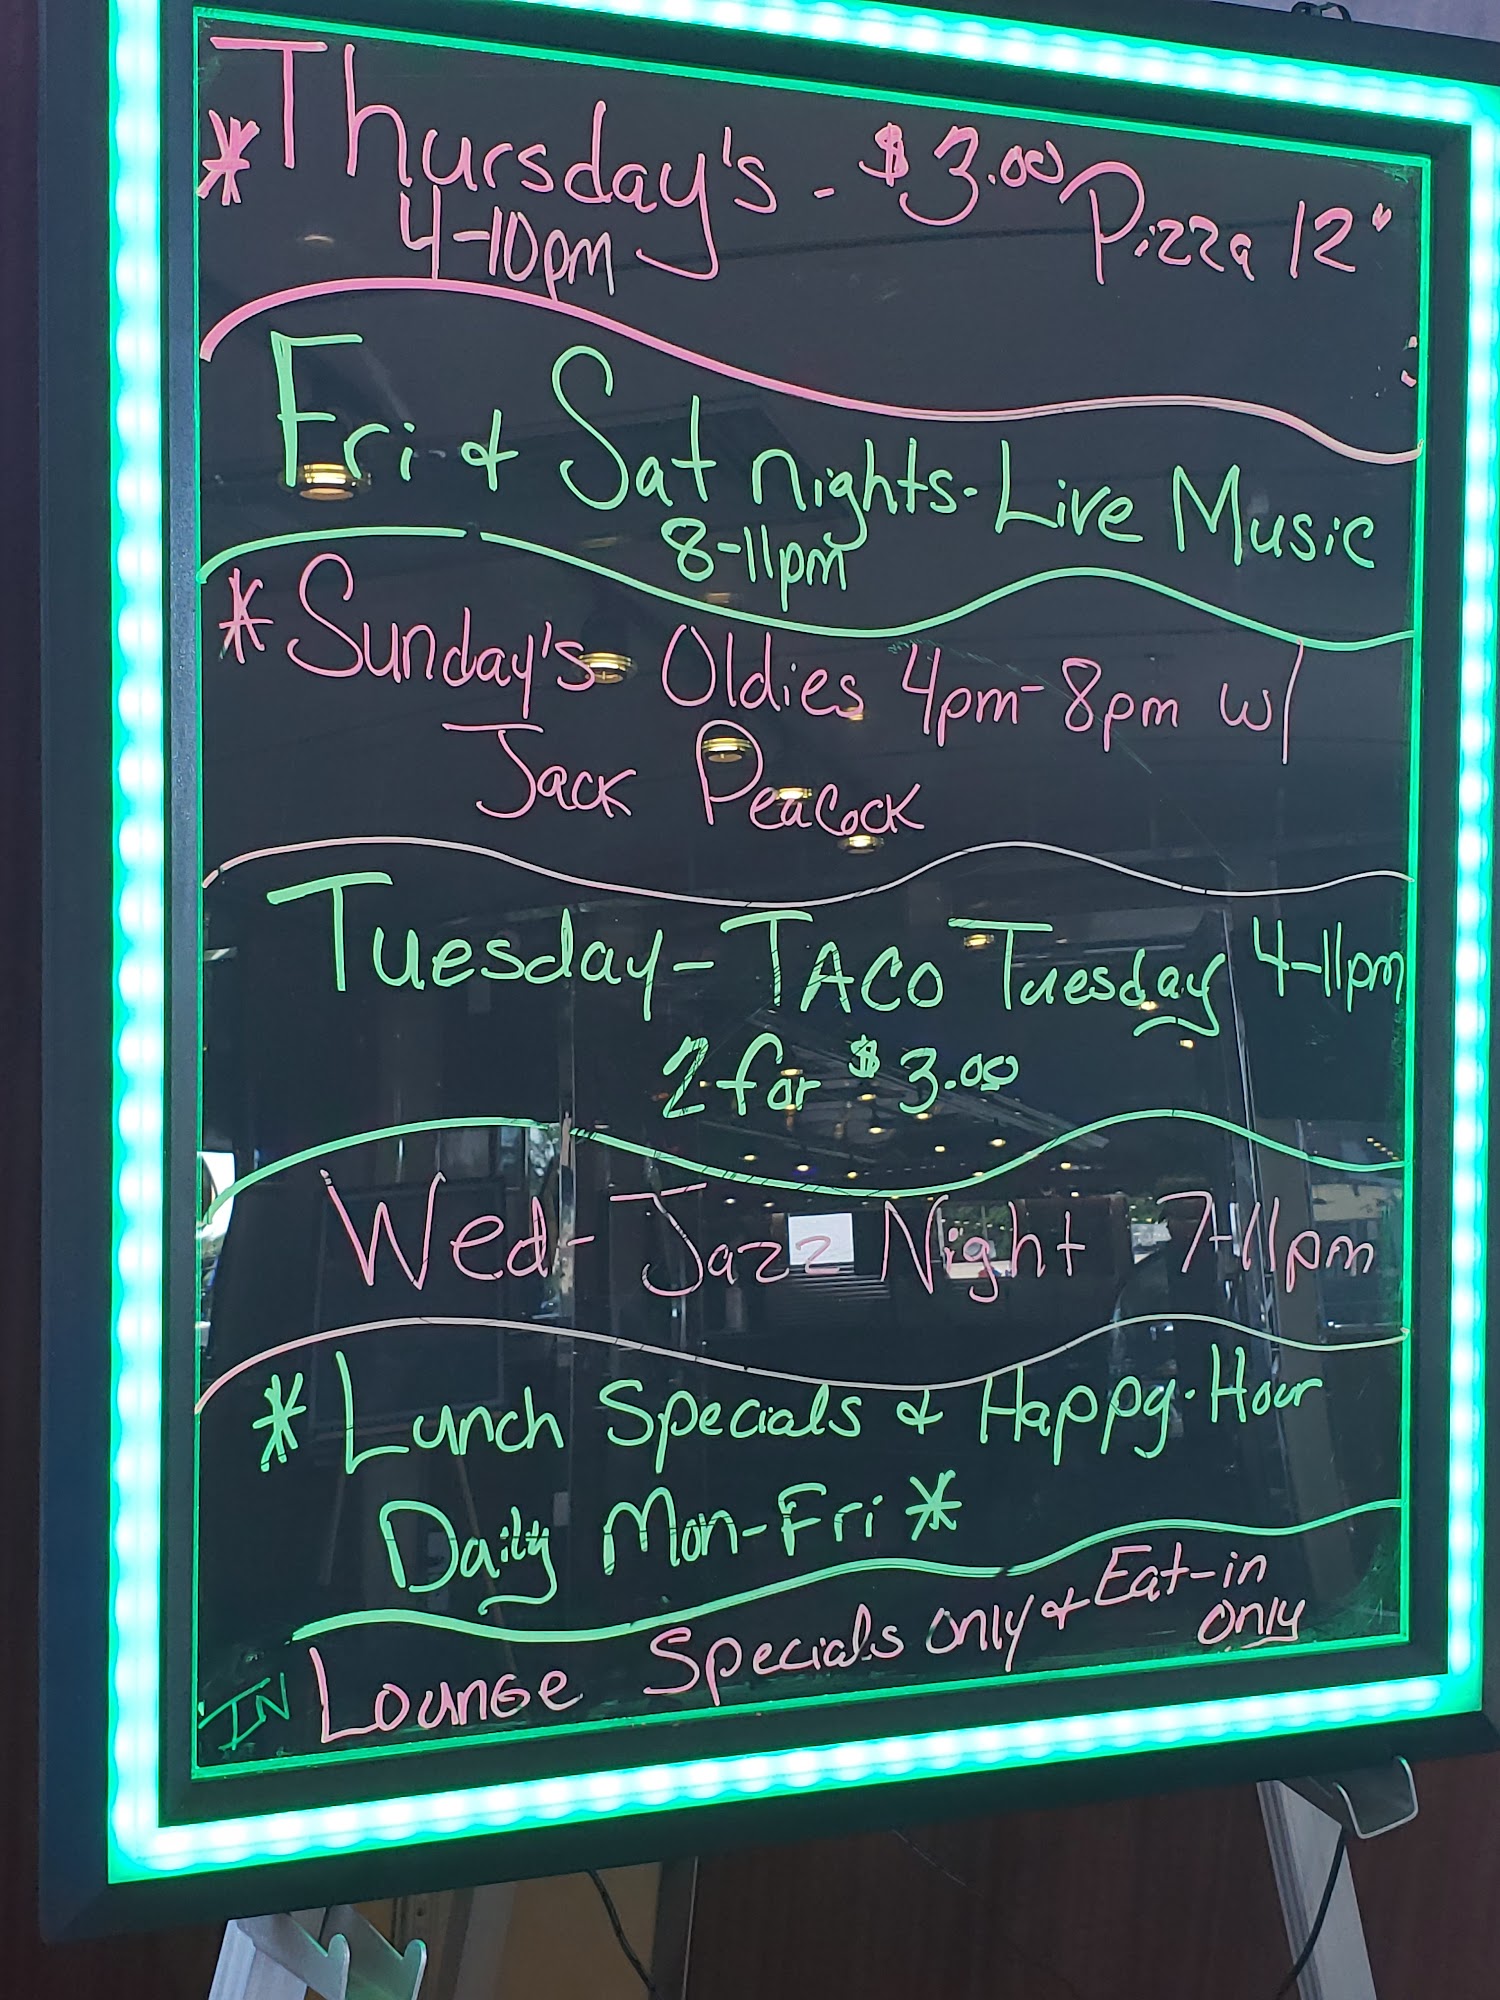 * Thursday's - $3.00 Pizza 12"
4-10pm
Fri & Sat nights - Live Music
8-11pm
* Sunday's Oldies 4pm-8pm w/
Jack Peacock
Tuesday - TACO Tuesday 4-11pm
2 for $3.00
Wed - Jazz Night 7-11pm
* Lunch Specials & Happy-Hour
Daily Mon-Fri *
IN Lounge Specials only & Eat-in
only